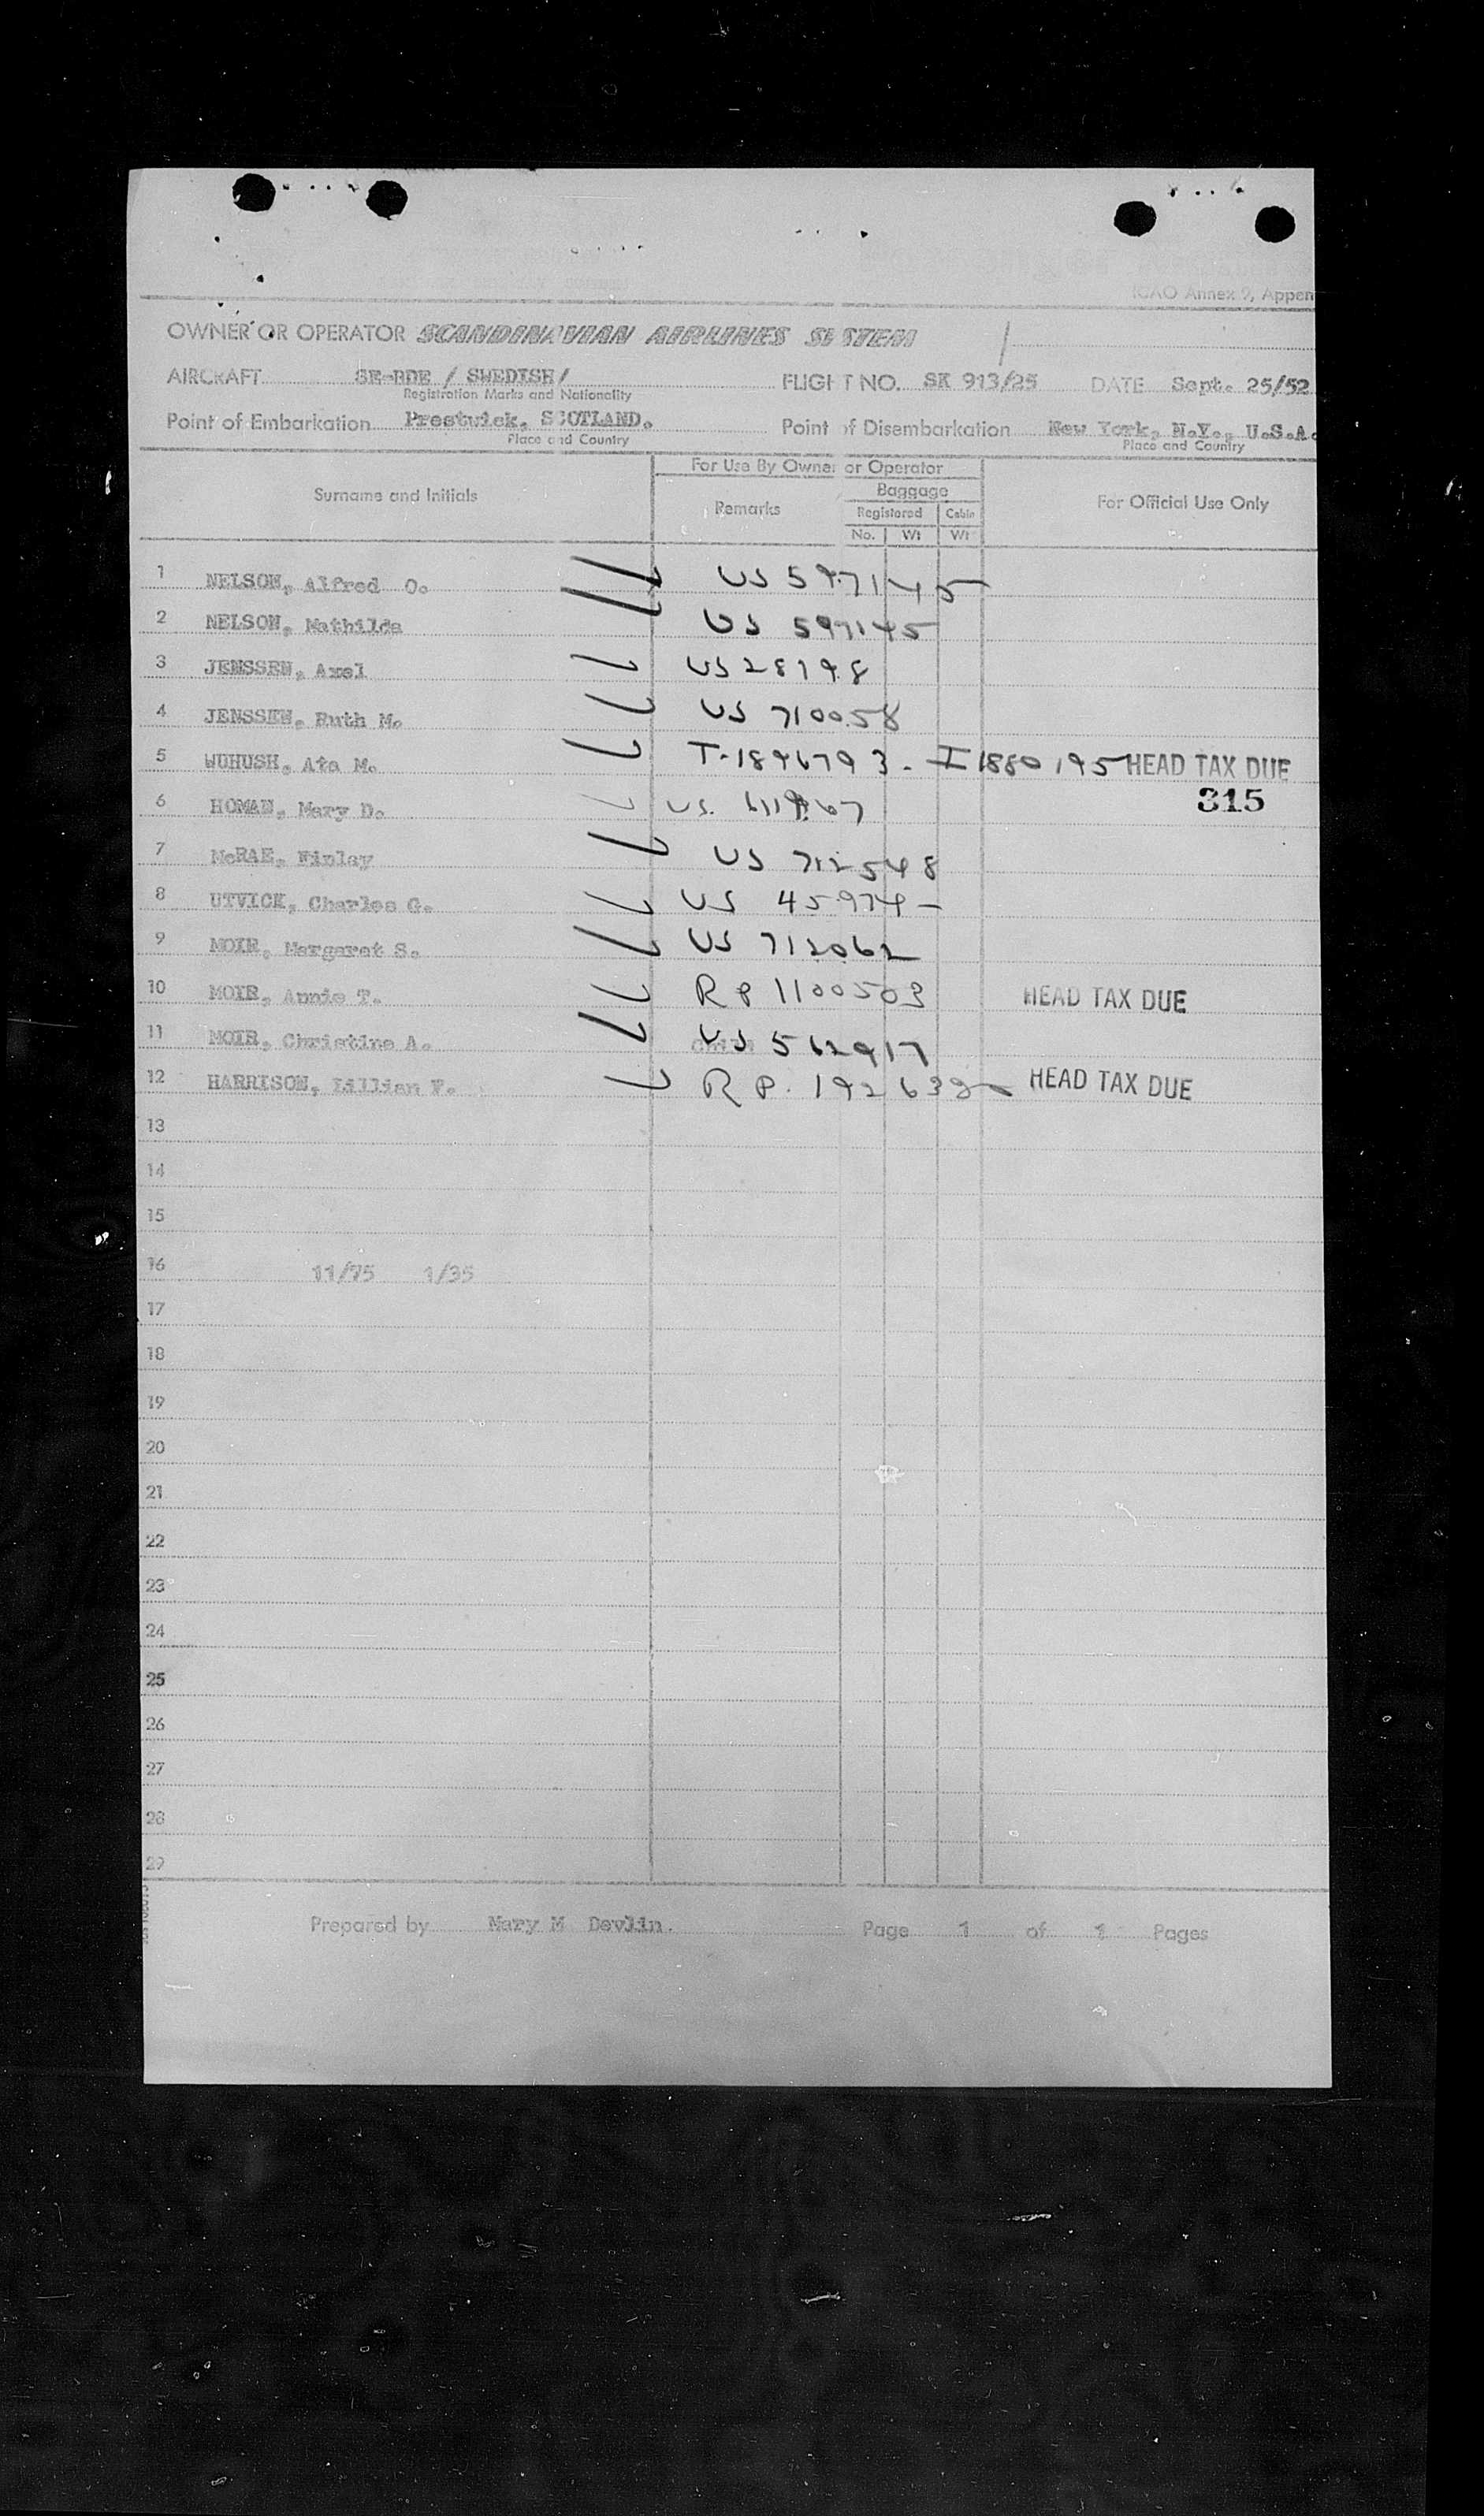 ICAO Annex 9, Appen
OWNER OR OPERATOR SCANDINAVIAN AIRLINES SYSTEM
AIRCRAFT SE-BDE / SWEDISH/ FLIGHT NO. SK 913/25 DATE Sept. 25/52
Registration Marks and Nationality
Point of Embarkation Prestwick, SCOTLAND. Point of Disembarkation New York, N.Y., U.S.A.
Place and Country Place and Country
For Use By Owner or Operator
Surname and Initials Remarks Baggage For Official Use Only
Registered Cabin
No. Wt Wt
1 NELSON, Alfred O. US 597145
2 NELSON, Mathilda US 597145
3 JENSSEN, Axel US 28198
4 JENSSEN, Ruth M. US 710058
5 WUHUSH, Ata M. T-1896793. I 1880195 HEAD TAX DUE
315
6 HOMAN, Mary D. US.
7 McRAE, Finlay US 712548
8 UTVICK, Charles G. US 45974
9 MOIR, Margaret S. US 712062
10 MOIR, Annie T. RP 1100503 HEAD TAX DUE
11 MOIR, Christine A. US 562917
12 HARRISON, Lillian F. RP. HEAD TAX DUE
13
14
15
16 11/75 1/35
17
18
19
20
21
22
23
24
25
26
27
28
29
Prepared by Mary M Devlin. Page 1 of 1 Pages